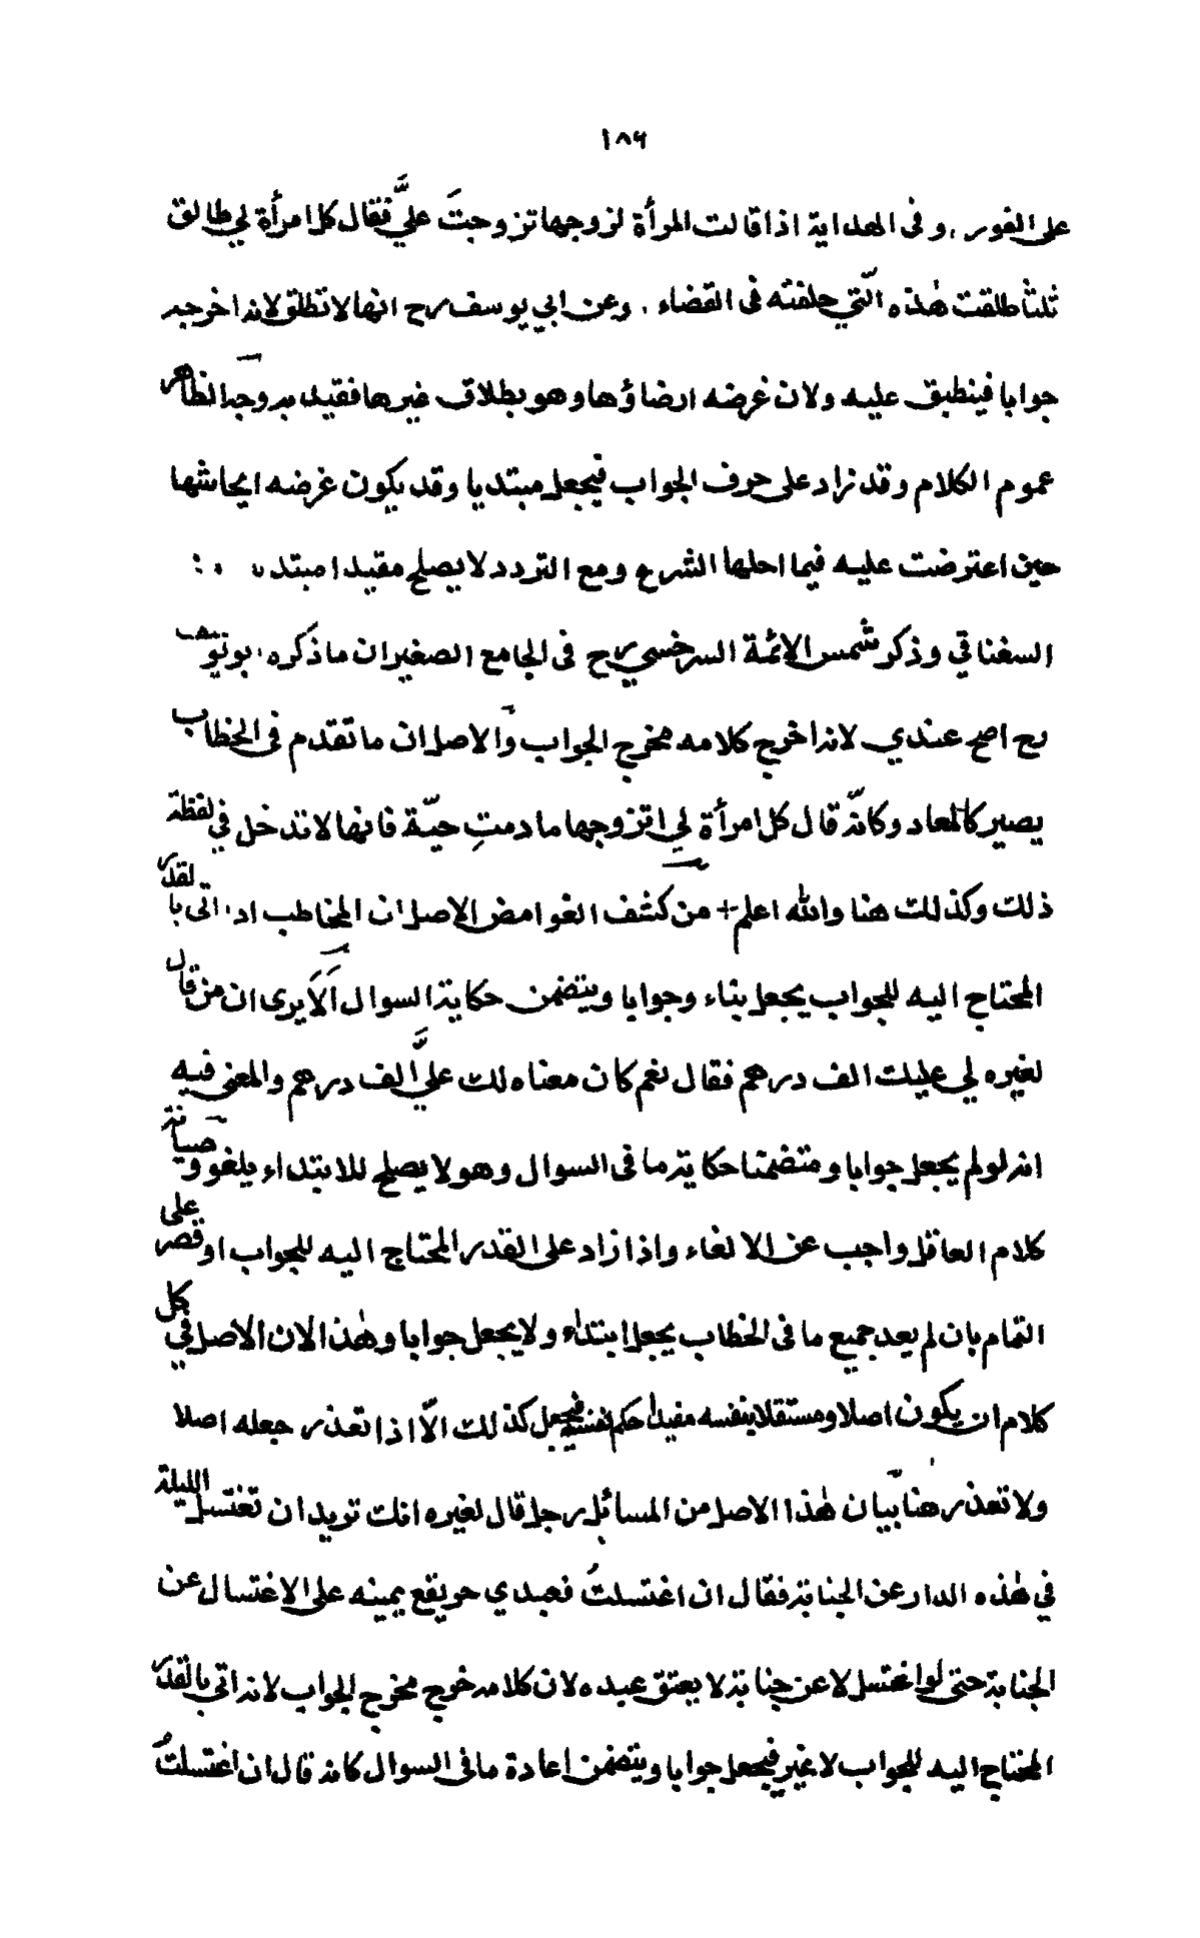 ١٨٩
على الفور ، و فى الهداية اذا قالت المرأة لزوجها تزوجتَ عليَّ فقال كل امرأة لي طالق
ثلثا طلقت هٰذه الّتي حلفته فى القضاء . وعن ابي يوسف رح انها لا تطلق لانه اخرجه
جوابا فينطبق عليه ولان غرضه ارضاؤها وهو بطلاق غيرها فقيد به وجه الظاهر
عموم الكلام وقد زاد على حرف الجواب فيجعل مبتديا وقد يكون غرضه ايحاشها
حين اعترضت عليه فيما احلها الشرع ومع التردد لا يصلح مقيدا مبتد
السغناقي وذكر شمس الائمة السرخسي رح فى الجامع الصغير ان ما ذكره ابو يوسف
رح اصح عندي لانه اخرج كلامه مخرج الجواب والاصل ان ما تقدم فى الخطاب
يصير كالمعاد وكانّه قال كل امرأة لي اتزوجها ما دمتِ حيّة فانها لا تدخل في لفظة
ذلك وكذلك هنا والله اعلم + من كشف الغوامض الاصل ان المخاطب اذا اتى بالقدر
المحتاج اليه للجواب يجعل بناء وجوابا ويتضمن حكاية السوال اَلَا يرى ان من قال
لغيره لي عليك الف درهم فقال نعم كان معناه لك عليَّ الف درهم والمعنى فيه
انه لو لم يجعل جوابا ومتضمنا حكاية ما فى السوال وهو لا يصلح للابتداء يلغو وصيانة
كلام العاقل واجب عن الالغاء واذا زاد على القدر المحتاج اليه للجواب او قصر على
التمام بان لم يعد جميع ما فى الخطاب يجعل ابتداء ولا يجعل جوابا وهٰذا لان الاصل في كل
كلام ان يكون اصلا ومستقلا بنفسه مفيدا حكم نفسه فيجعل كذلك الّا اذا تعذر جعله اصلا
ولا تعذر هٰنا بيان هٰذا الاصل من المسائل رجل قال لغيره انك تريد ان تغتسل الليلة
في هٰذه الدار عن الجنابة فقال ان اغتسلتُ فعبدي حر يقع يمينه على الاغتسال عن
الجنابة حتى لو اغتسل لا عن جنابة لا يعتق عبده لان كلامه خرج مخرج الجواب لانه اتى بالقدر
المحتاج اليه للجواب لا غير فيجعل جوابا ويتضمن اعادة ما فى السوال كانه قال ان اغتسلتُ